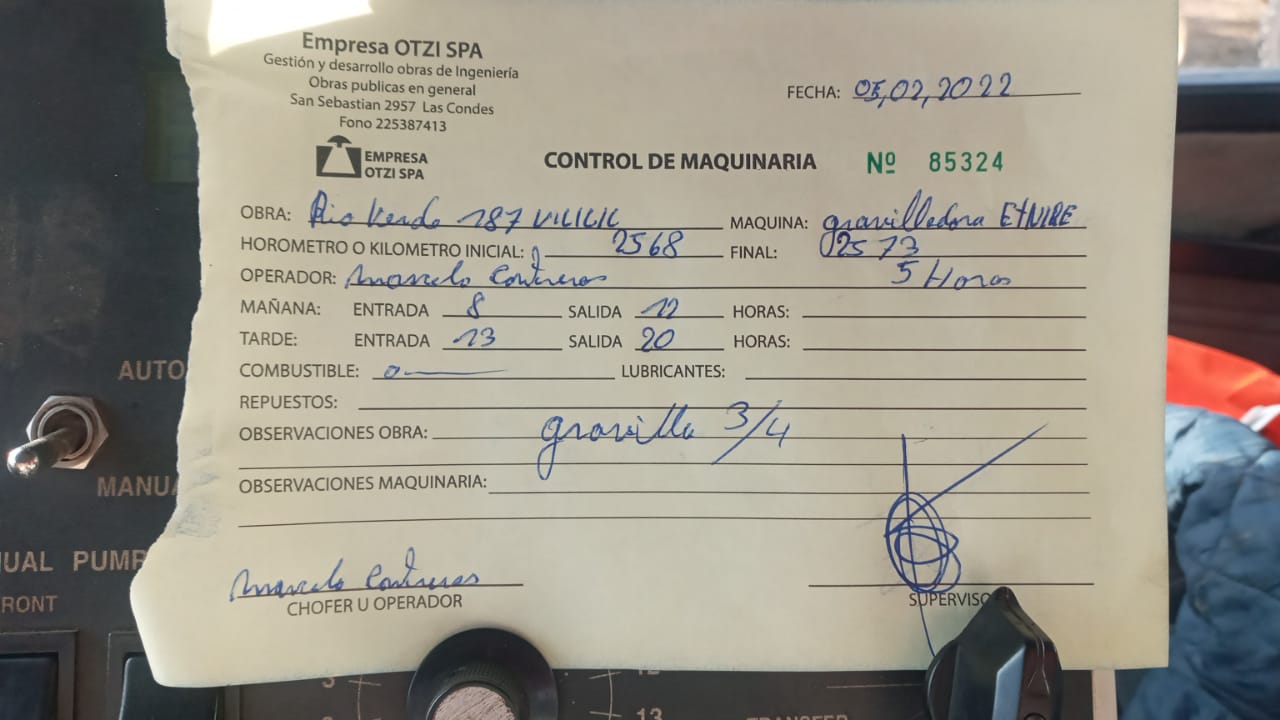 Empresa OTZI SPA
Gestión y desarrollo obras de Ingeniería
Obras publicas en general
San Sebastian 2957 Las Condes
Fono 225387413
FECHA: 05,02,2022
EMPRESA
OTZI SPA
CONTROL DE MAQUINARIA Nº 85324
OBRA: Rio Verde 187 VILILIL MAQUINA: gravilladora ETNYRE
HOROMETRO O KILOMETRO INICIAL: 2568 FINAL: 2573
OPERADOR: Marcelo Contreras 5 Horas
MAÑANA: ENTRADA 8 SALIDA 12 HORAS:
TARDE: ENTRADA 13 SALIDA 20 HORAS:
COMBUSTIBLE: 0 LUBRICANTES:
REPUESTOS:
OBSERVACIONES OBRA: gravilla 3/4
OBSERVACIONES MAQUINARIA:
Marcelo Contreras
CHOFER U OPERADOR
SUPERVISO
AUTO
MANUA
UAL PUMP
RONT
12
13
TRANSFER